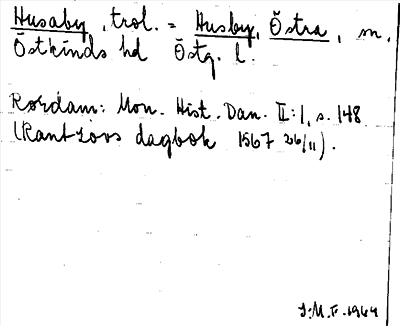 Husaby, trol. = Husby, Östra, sn,
Östkinds hd Östg. l.
Rørdam: Mon. Hist. Dan. II:1, s. 148
(Rantzovs dagbok 1567 26/11).
J.M.F. 1964